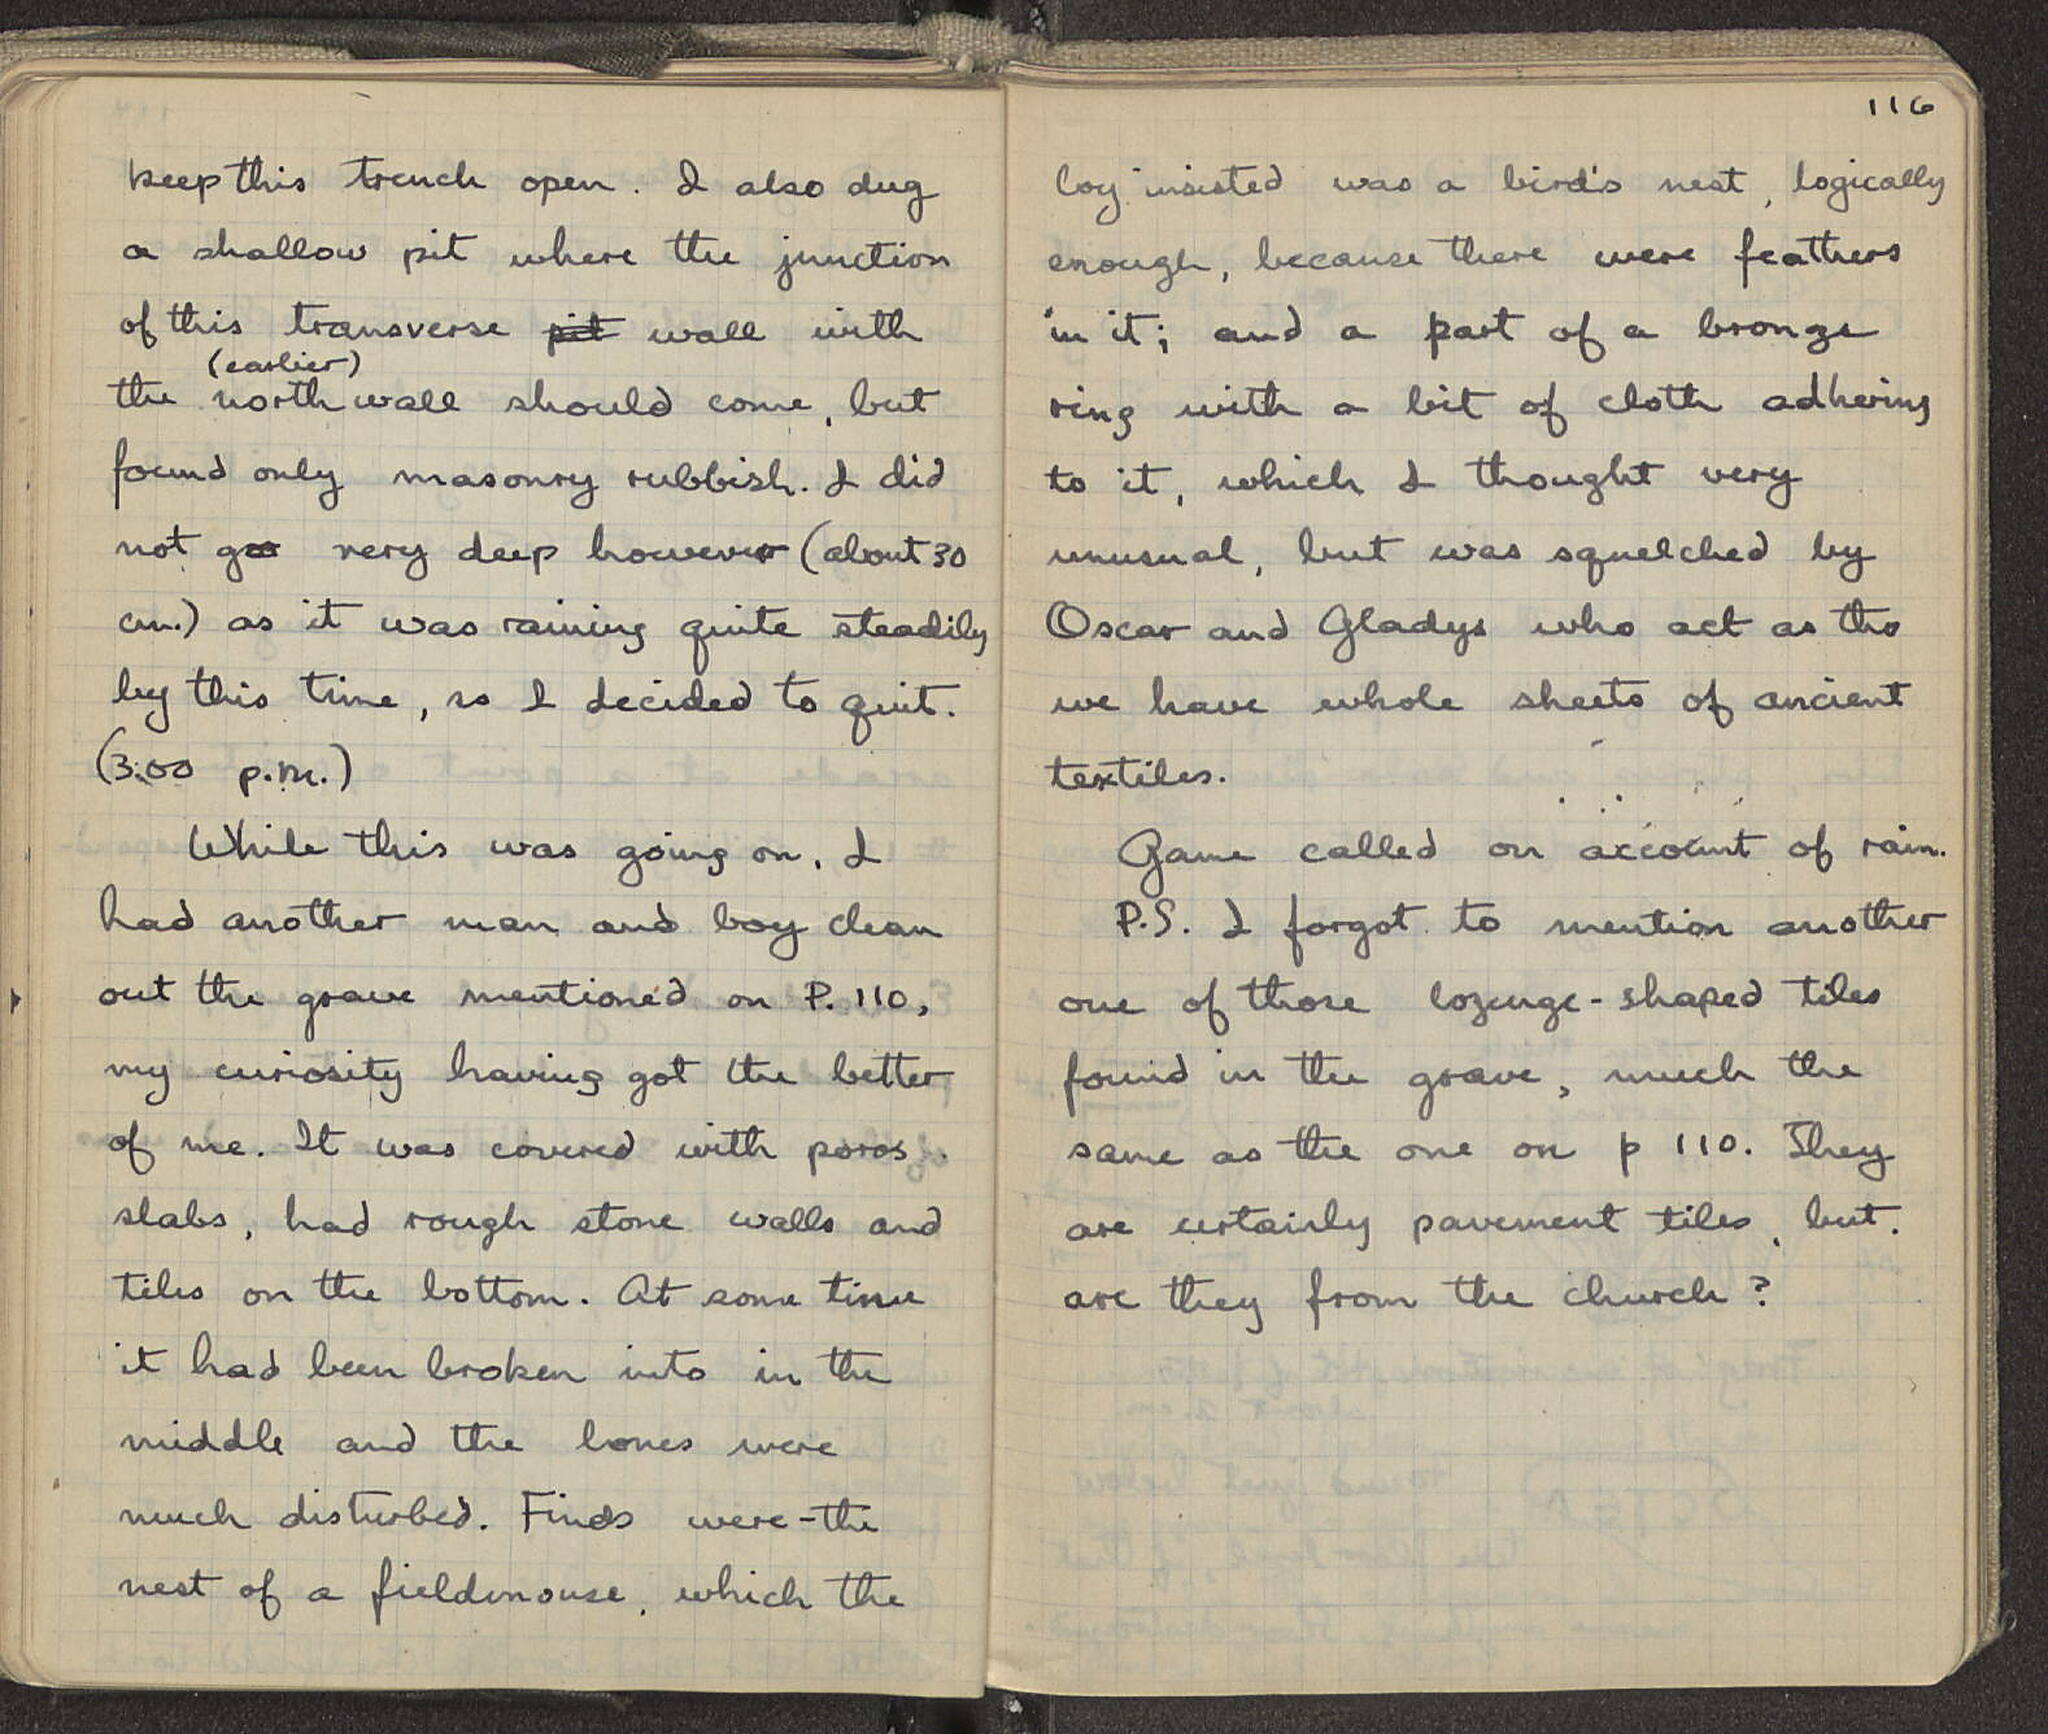 keep this trench open. I also dug
a shallow pit where the junction
of this transverse pit wall with
(earlier)
the north wall should come, but
found only masonry rubbish. I did
not go very deep however (about 30
cm.) as it was raining quite steadily
by this time, so I decided to quit.
(3:00 p.m.)
While this was going on, I
had another man and boy clean
out the grave mentioned on P. 110,
my curiosity having got the better
of me. It was covered with poros
slabs, had rough stone walls and
tiles on the bottom. At some time
it had been broken into in the
middle and the bones were
much disturbed. Finds were - the
nest of a fieldmouse, which the
116
boy insisted was a bird's nest, logically
enough, because there were feathers
in it; and a part of a bronze
ring with a bit of cloth adhering
to it, which I thought very
unusual, but was squelched by
Oscar and Gladys who act as tho
we have whole sheets of ancient
textiles.
Game called on account of rain.
P.S. I forgot to mention another
one of those lozenge-shaped tiles
found in the grave, much the
same as the one on p 110. They
are certainly pavement tiles, but
are they from the church?